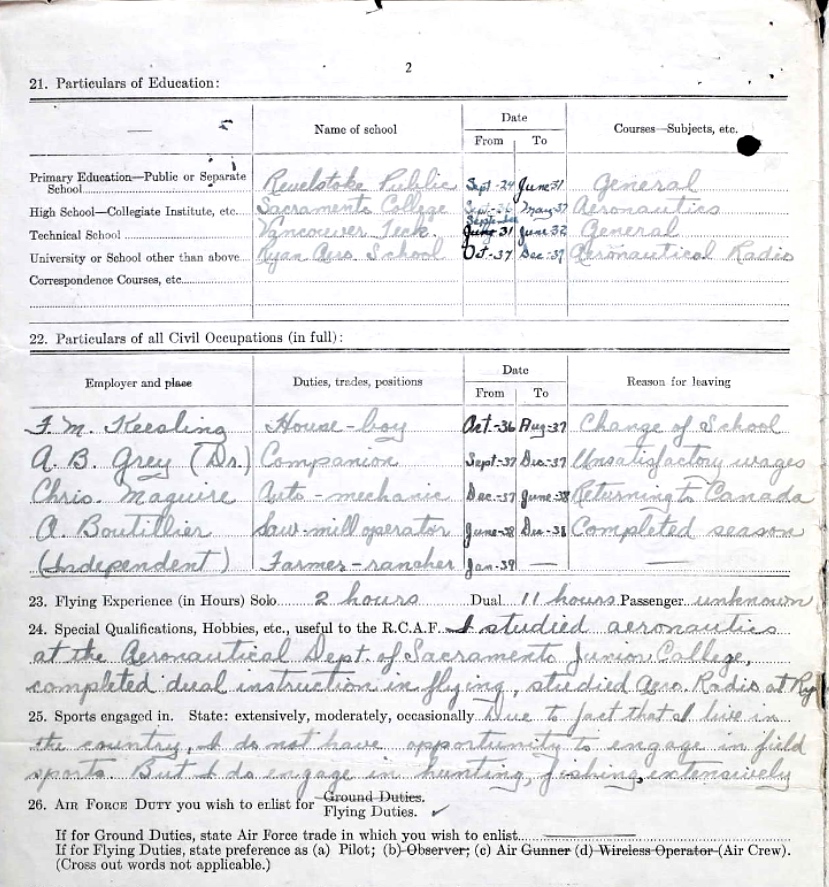 2
21. Particulars of Education:
Name of school
Date
Courses—Subjects, etc.
From
To
Primary Education—Public or Separate
School Revelstoke Public Sept-24 June 31 General
High School—Collegiate Institute, etc. Sacramento College Sept-36 May 37 Aeronautics
Technical School Vancouver Teck. 31 June 32 General
University or School other than above Ryan Aero. School Oct-37 Dec-37 Aeronautical Radio
Correspondence Courses, etc.
22. Particulars of all Civil Occupations (in full):
Employer and place
Duties, trades, positions
Date
Reason for leaving
From
To
F. M. Keesling House-boy Oct.-36 Aug-37 Change of School
A. B. Grey (Dr.) Companion Sept-37 Dec-37 Unsatisfactory wages
Chris. Maguire Auto-mechanic Dec-37 June-38 Returning to Canada
A. Boutillier Saw-mill operator June-38 Dec-38 Completed season
(Independent) Farmer-rancher Jan-39 — —
23. Flying Experience (in Hours) Solo 2 hours Dual 11 hours Passenger unknown
24. Special Qualifications, Hobbies, etc., useful to the R.C.A.F. I studied aeronautics
at the Aeronautical Dept. of Sacramento Junior College,
completed dual instruction in flying, studied Aero. Radio at Ry
25. Sports engaged in. State: extensively, moderately, occasionally Due to fact that I live in
the country, I do not have opportunity to engage in field
sports. But I do engage in hunting, fishing, extensively
26. AIR FORCE DUTY you wish to enlist for Ground Duties.
Flying Duties. ✓
If for Ground Duties, state Air Force trade in which you wish to enlist
If for Flying Duties, state preference as (a) Pilot; (b) Observer; (c) Air Gunner (d) Wireless Operator (Air Crew).
(Cross out words not applicable.)